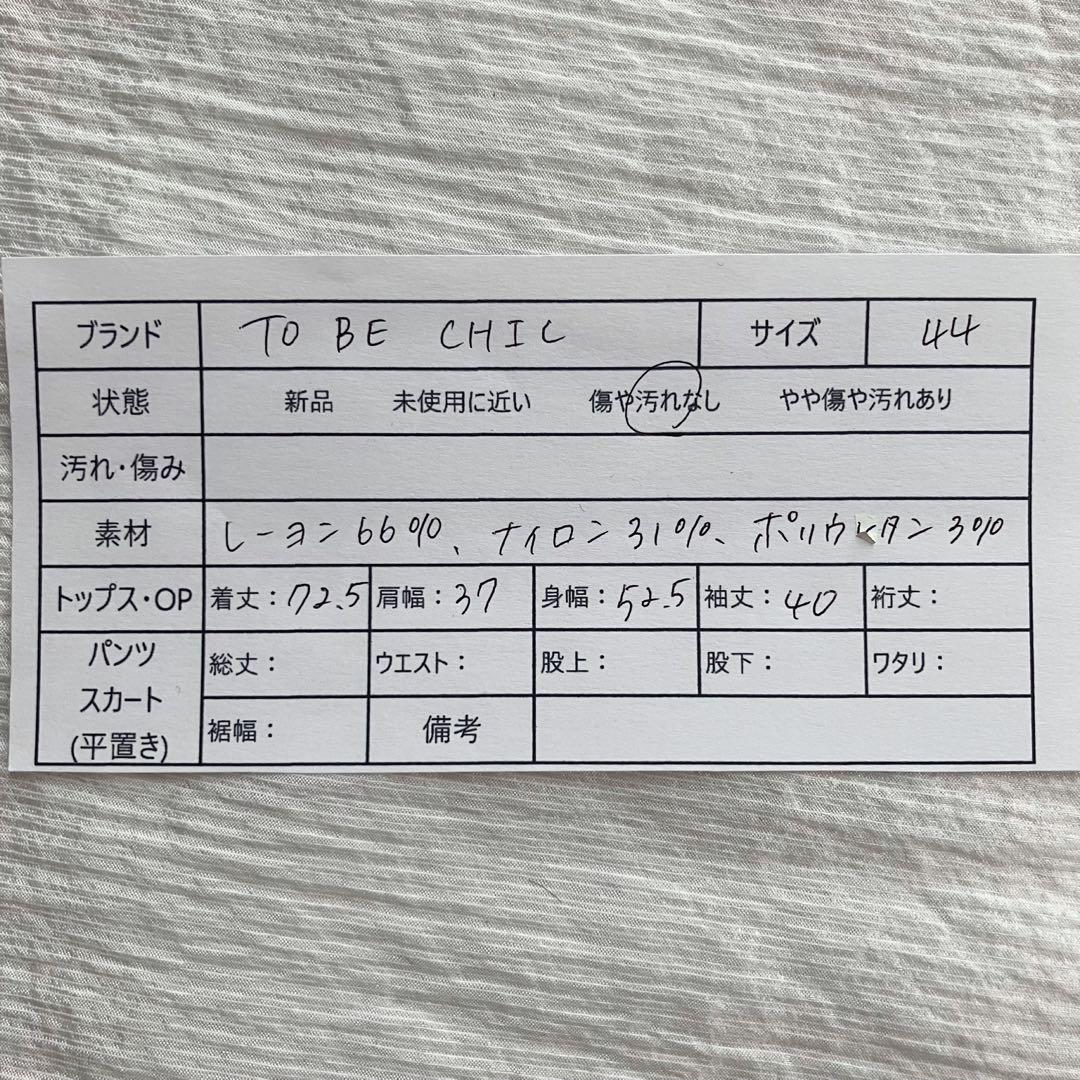 ブランド TO BE CHIC サイズ 44
状態 新品 未使用に近い 傷や汚れなし やや傷や汚れあり
汚れ・傷み
素材 レーヨン66%、ナイロン31%、ポリウレタン3%
トップス・OP 着丈：72.5 肩幅：37 身幅：52.5 袖丈：40 裄丈：
パンツ
スカート
(平置き)
総丈： ウエスト： 股上： 股下： ワタリ：
裾幅： 備考